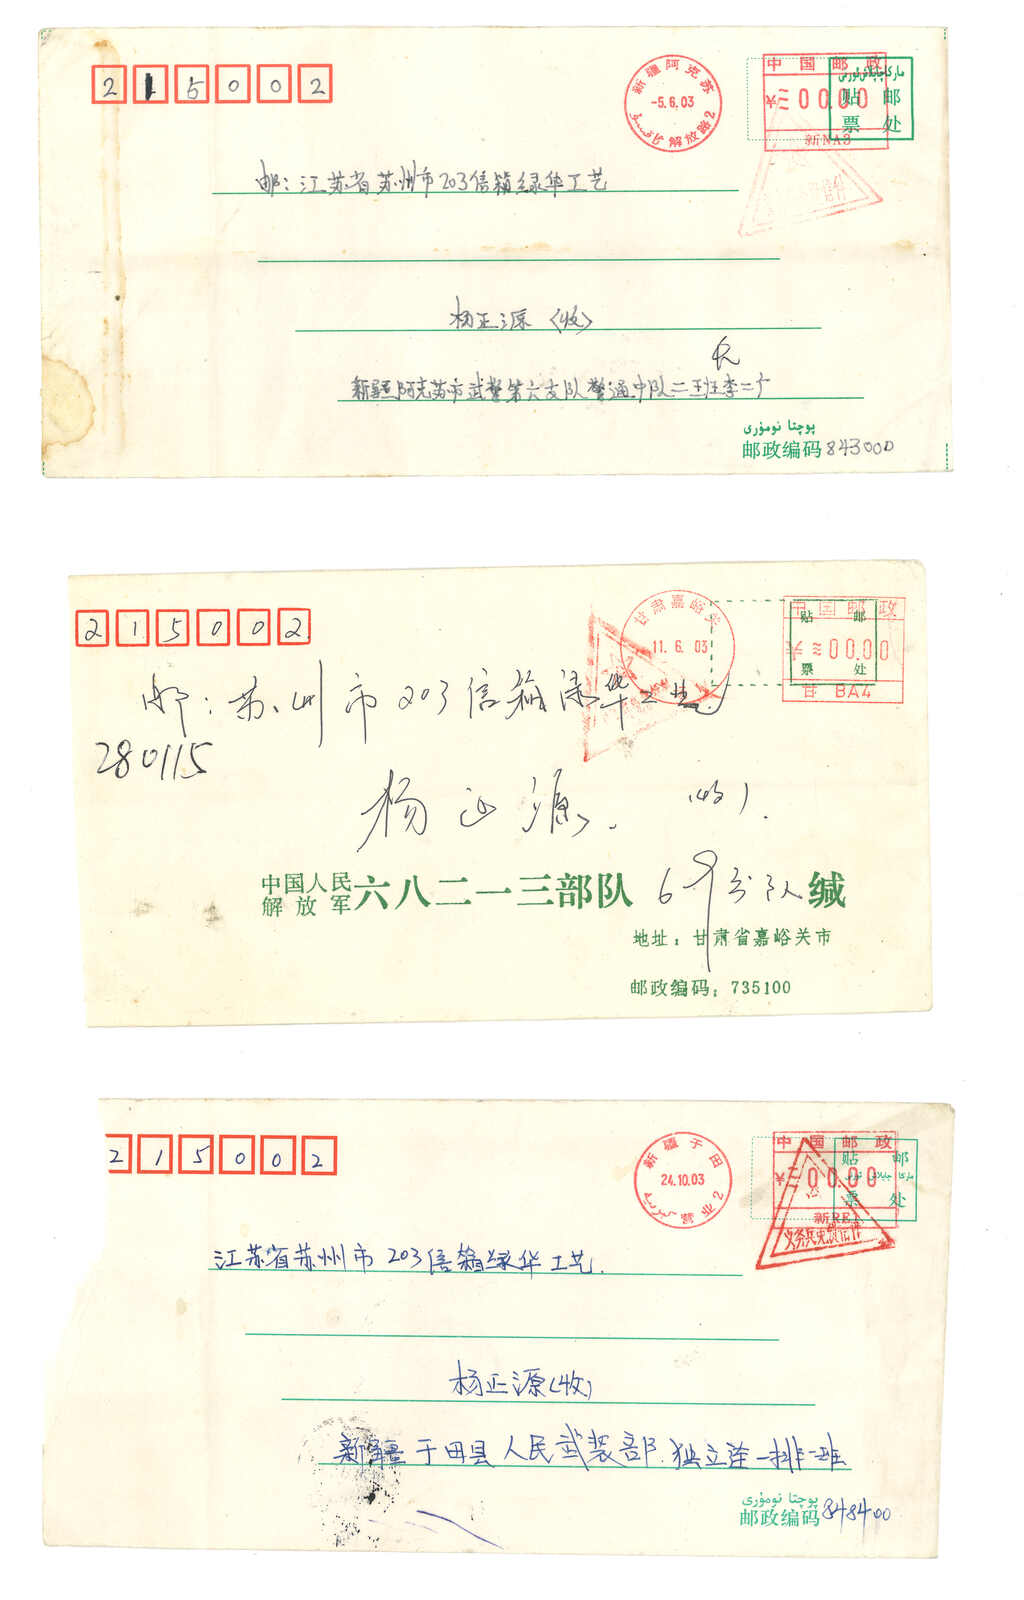 215002
新疆阿克苏
-5.6.03
解放路2
中国邮政
¥≡00.00
贴邮
票处
新NA3
邮:江苏省苏州市203信箱绿华工艺
杨正源(收)
新疆阿克苏市武警第六支队警通中队二班李二广
پوچتا نومۇرى
邮政编码 843000
215002
甘肃嘉峪关
11.6.03
中国邮政
贴邮
≡00.00
票处
甘 BA4
邮:苏州市203信箱绿华工艺
280115
杨正源 (收).
中国人民
解放军六八二一三部队 69分队缄
地址:甘肃省嘉峪关市
邮政编码:735100
215002
新疆于田
24.10.03
营业2
中国邮政
贴邮
¥≡00.00
票处
新RE1
义务兵免费信件
江苏省苏州市203信箱绿华工艺.
杨正源(收)
新疆于田县人民武装部独立连一排二班
پوچتا نومۇرى
邮政编码 848400